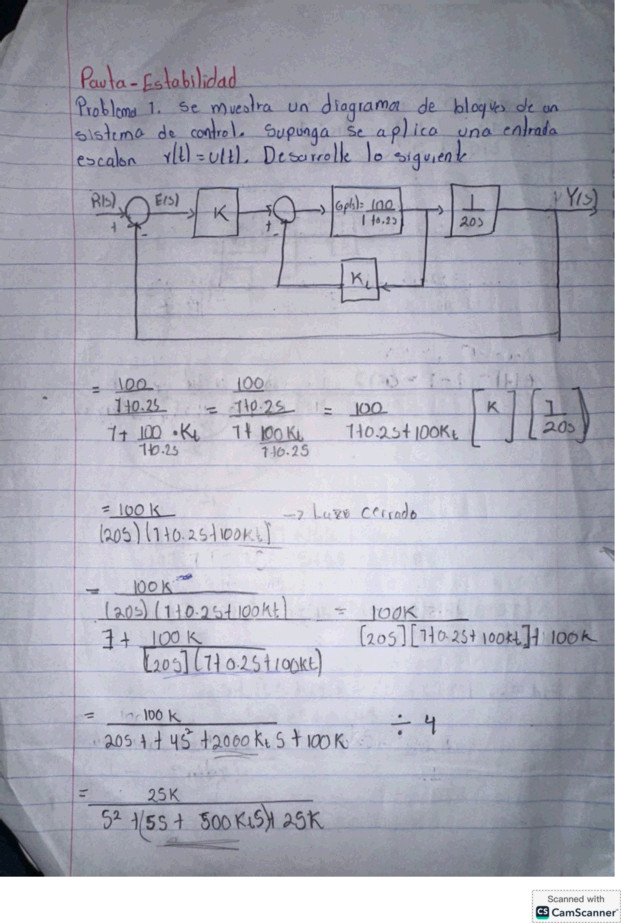 Pauta-Estabilidad
Problema 1. Se muestra un diagrama de bloques de un
sistema de control. Suponga se aplica una entrada
escalon r(t)=u(t). Desarrolle lo siguiente
R(s) + - E(s) K + - Gp(s)= 100 / 1+0.2s 1 / 20s Y(s)
Kt
= 100 / 1+0.2s / 1+ 100 / 1+0.2s • Kt = 100 / 1+0.2s / 1+ 100Kt / 1+0.2s = 100 / 1+0.2s+100Kt [K] [1 / 20s]
= 100K / (20s)(1+0.2s+100Kt) -> Lazo cerrado
= 100K / (20s)(1+0.2s+100Kt) / 1+ 100K / [20s](1+0.2s+100Kt) = 100K / [20s][1+0.2s+100Kt]+100K
= 100K / 20s + + 4s² + 2000Kts + 100K ÷ 4
= 25K / s² + (5s + 500Kts) + 25K
Scanned with
CS CamScanner